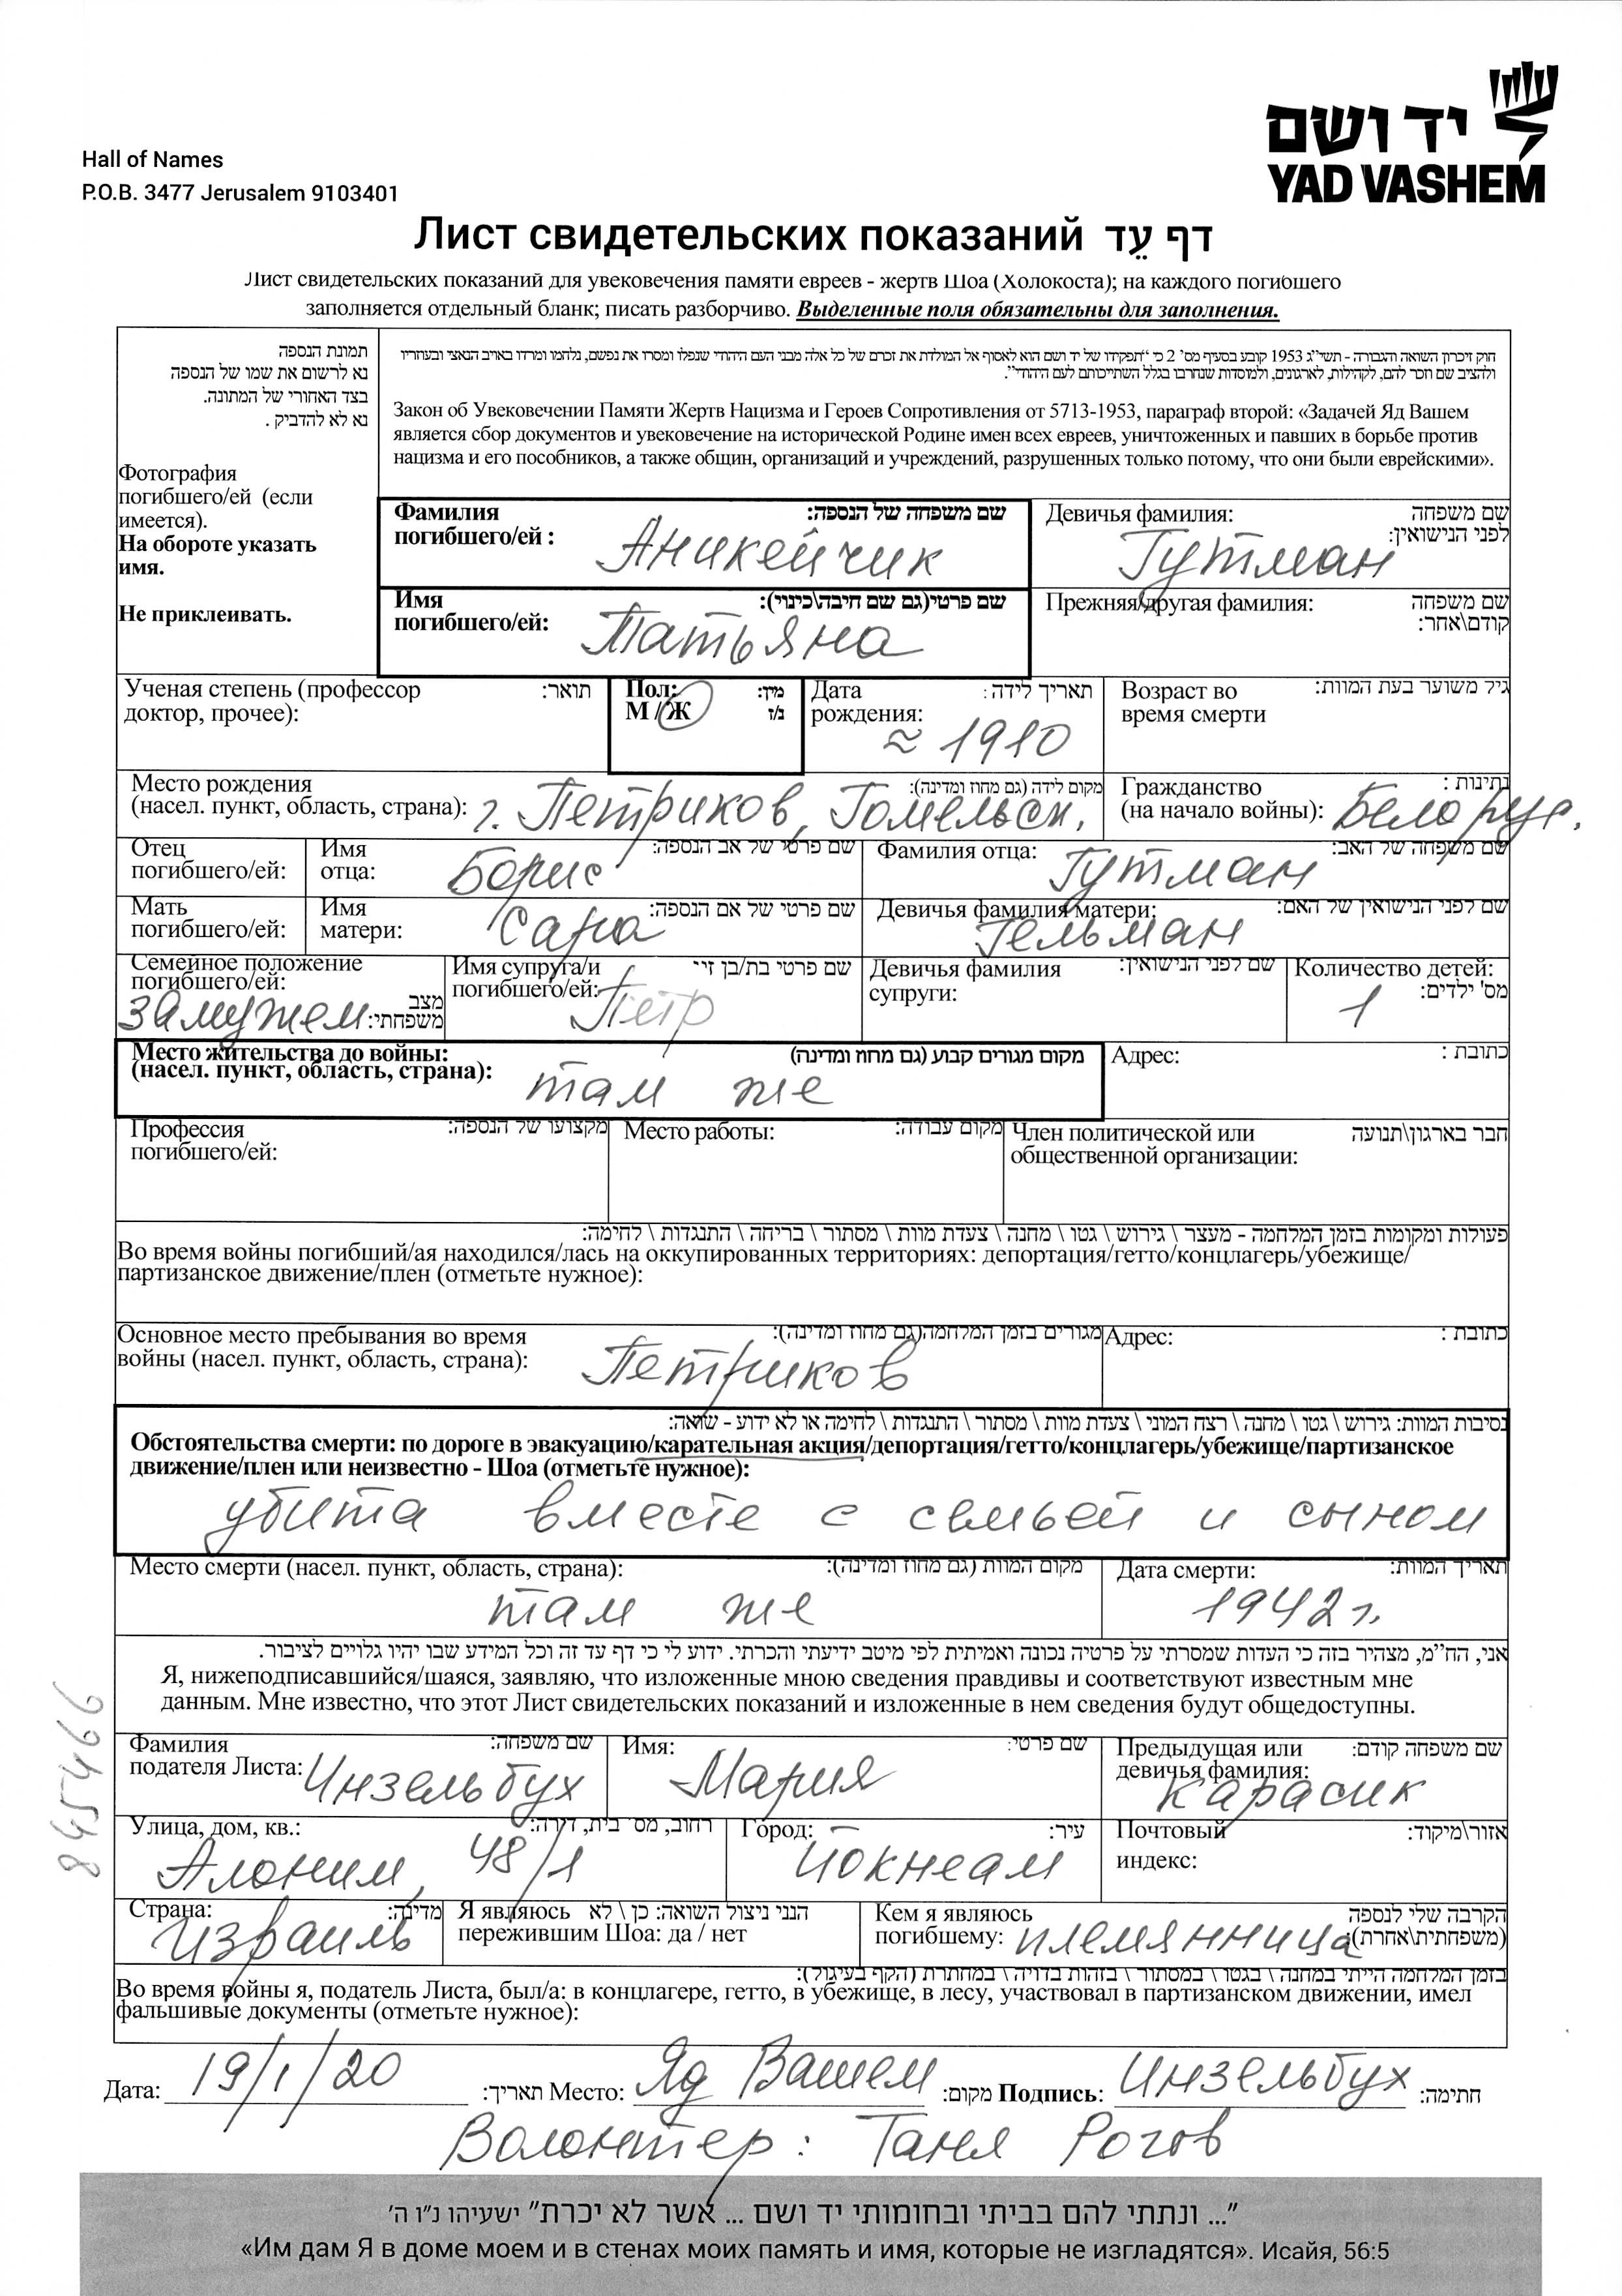 יד ושם
YAD VASHEM
Hall of Names
P.O.B. 3477 Jerusalem 9103401
Лист свидетельских показаний דף עֵד
Лист свидетельских показаний для увековечения памяти евреев - жертв Шоа (Холокоста); на каждого погибшего
заполняется отдельный бланк; писать разборчиво. Выделенные поля обязательны для заполнения.
תמונת הנספה
נא לרשום את שמו של הנספה
בצד האחורי של המתונה.
נא לא להדביק .
Фотография
погибшего/ей (если
имеется).
На обороте указать
имя.
Не приклеивать.
חוק זיכרון השואה והגבורה - תשי"ג 1953 קובע בסעיף מס' 2 כי "תפקידו של יד ושם הוא לאסוף אל המולדת את זכרם של כל אלה מבני העם היהודי שנפלו ומסרו את נפשם, נלחמו ומרדו באויב הנאצי ובעוזריו
ולהציב שם וזכר להם, לקהילות, לארגונים, ולמוסדות שנחרבו בגלל השתייכותם לעם היהודי".
Закон об Увековечении Памяти Жертв Нацизма и Героев Сопротивления от 5713-1953, параграф второй: «Задачей Яд Вашем
является сбор документов и увековечение на исторической Родине имен всех евреев, уничтоженных и павших в борьбе против
нацизма и его пособников, а также общин, организаций и учреждений, разрушенных только потому, что они были еврейскими».
Фамилия שם משפחה של הנספה:
погибшего/ей : Аникейчик
Девичья фамилия: שם משפחה
לפני הנישואין:
Гутман
Имя שם פרטי(גם שם חיבה\כינוי):
погибшего/ей: Татьяна
Прежняя/другая фамилия: שם משפחה
קודם\אחר:
Ученая степень (профессор תואר:
доктор, прочее):
Пол: מין:
М / Ж ז/נ
Дата תאריך לידה :
рождения:
≈ 1910
Возраст во גיל משוער בעת המוות:
время смерти
Место рождения מקום לידה (גם מחוז ומדינה):
(насел. пункт, область, страна): г. Петриков, Гомельск.
Гражданство נתינות :
(на начало войны): Белорус.
Отец
погибшего/ей:
Имя שם פרטי של אב הנספה:
отца: Борис
Фамилия отца: שם משפחה של האב:
Гутман
Мать
погибшего/ей:
Имя שם פרטי של אם הנספה:
матери: Сара
Девичья фамилия матери: שם לפני הנישואין של האם:
Гельман
Семейное положение
погибшего/ей: מצב
замужем משפחתי:
Имя супруга/и שם פרטי בת/בן זוג
погибшего/ей: Пётр
Девичья фамилия שם לפני הנישואין:
супруги:
Количество детей:
מס' ילדים:
1
Место жительства до войны: מקום מגורים קבוע (גם מחוז ומדינה)
(насел. пункт, область, страна): там же
Адрес: כתובת :
Профессия מקצועו של הנספה:
погибшего/ей:
Место работы: מקום עבודה:
Член политической или חבר בארגון\תנועה
общественной организации:
פעולות ומקומות בזמן המלחמה - מעצר \ גירוש \ גטו \ מחנה \ צעדת מוות \ מסתור \ בריחה \ התנגדות \ לחימה:
Во время войны погибший/ая находился/лась на оккупированных территориях: депортация/гетто/концлагерь/убежище/
партизанское движение/плен (отметьте нужное):
Основное место пребывания во время מגורים בזמן המלחמה(גם מחוז ומדינה):
войны (насел. пункт, область, страна): Петриков
Адрес: כתובת :
נסיבות המוות: גירוש \ גטו \ מחנה \ רצח המוני \ צעדת מוות \ מסתור \ התנגדות \ לחימה או לא ידוע - שואה:
Обстоятельства смерти: по дороге в эвакуацию/карательная акция/депортация/гетто/концлагерь/убежище/партизанское
движение/плен или неизвестно - Шоа (отметьте нужное):
убита вместе с семьей и сыном
Место смерти (насел. пункт, область, страна): מקום המוות (גם מחוז ומדינה):
там же
Дата смерти: תאריך המוות:
1942 г.
אני, הח"מ, מצהיר בזה כי העדות שמסרתי על פרטיה נכונה ואמיתית לפי מיטב ידיעתי והכרתי. ידוע לי כי דף עד זה וכל המידע שבו יהיו גלויים לציבור.
Я, нижеподписавшийся/шаяся, заявляю, что изложенные мною сведения правдивы и соответствуют известным мне
данным. Мне известно, что этот Лист свидетельских показаний и изложенные в нем сведения будут общедоступны.
845466
Фамилия שם משפחה:
подателя Листа: Инзельбух
Имя: שם פרטי:
Мария
Предыдущая или שם משפחה קודם:
девичья фамилия:
Карасик
Улица, дом, кв.: רחוב, מס' בית, דירה:
Алоним, 48/1
Город: עיר:
Йокнеам
Почтовый אזור\מיקוד:
индекс:
Страна: מדינה:
Израиль
Я являюсь הנני ניצול השואה: כן \ לא
пережившим Шоа: да / нет
Кем я являюсь הקרבה שלי לנספה
погибшему: племянница (משפחתית\אחרת):
בזמן המלחמה הייתי במחנה \ בגטו \ במסתור \ בזהות בדויה \ במחתרת (הקף בעיגול):
Во время войны я, податель Листа, был/а: в концлагере, гетто, в убежище, в лесу, участвовал в партизанском движении, имел
фальшивые документы (отметьте нужное):
Дата: 19/1/20 תאריך: Место: Яд Вашем מקום: Подпись: Инзельбух חתימה:
Волонтер: Таня Рогов
"... ונתתי להם בביתי ובחומותי יד ושם ... אשר לא יכרת" ישעיהו נ"ו ה'
«Им дам Я в доме моем и в стенах моих память и имя, которые не изгладятся». Исайя, 56:5